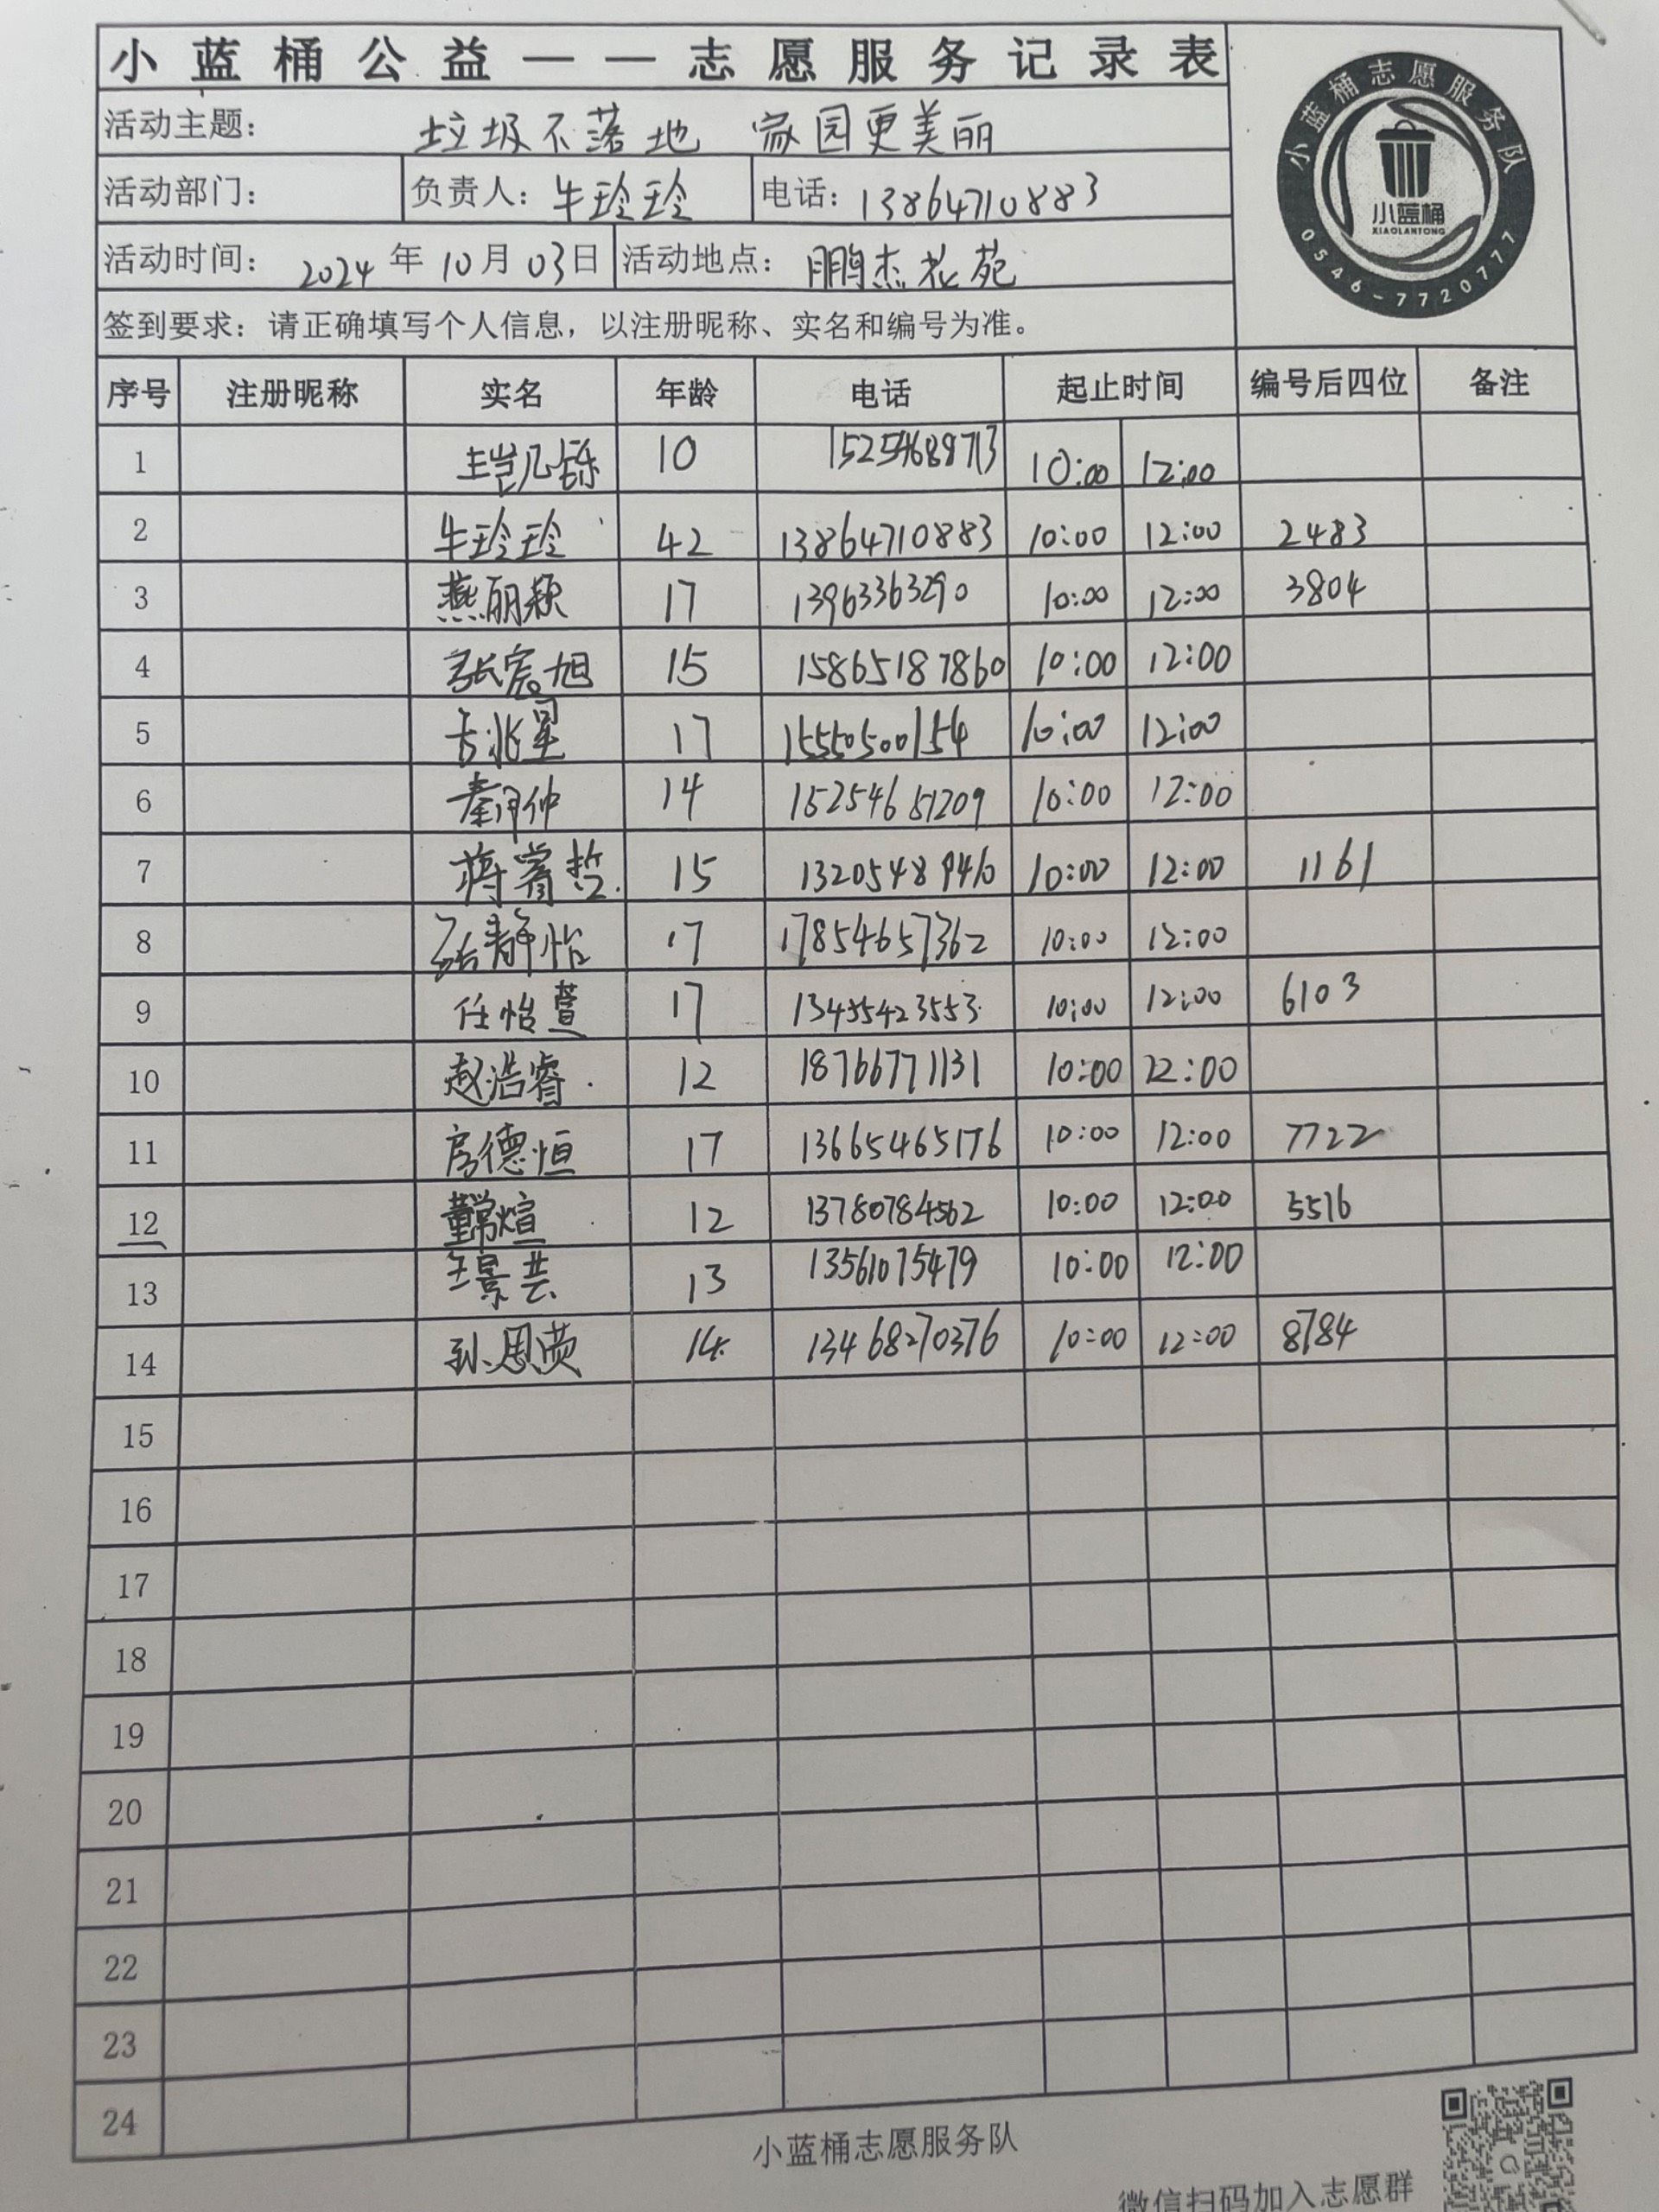 小蓝桶公益——志愿服务记录表
活动主题： 垃圾不落地 家园更美丽
活动部门： 负责人：牛玲玲 电话：13864710883
活动时间： 2024 年 10 月 03 日 活动地点： 鹏杰花苑
签到要求：请正确填写个人信息，以注册昵称、实名和编号为准。
小蓝桶志愿服务队
小蓝桶
XIAOLANTONG
0546-7720777
序号 注册昵称 实名 年龄 电话 起止时间 编号后四位 备注
1 10 10:00 12:00
2 牛玲玲 42 13864710883 10:00 12:00 2483
3 燕丽颖 17 13963363290 10:00 12:00 3804
4 张宸旭 15 15865187860 10:00 12:00
5 兆星 17 15550500154 10:00 12:00
6 秦 仲 14 15254651209 10:00 12:00
7 蒋睿哲 15 13205489460 10:00 12:00 1161
8 静怡 17 17854657362 10:00 12:00
9 任怡萱 17 13455423553 10:00 12:00 6103
10 赵浩睿 12 18766771131 10:00 12:00
11 房德恒 17 13665465176 10:00 12:00 7722
12 董常煊 12 13780784562 10:00 12:00 5576
13 王景芸 13 13561075479 10:00 12:00
14 孙思 14 13468270376 10:00 12:00 8784
15
16
17
18
19
20
21
22
23
24
小蓝桶志愿服务队
微信扫码加入志愿群